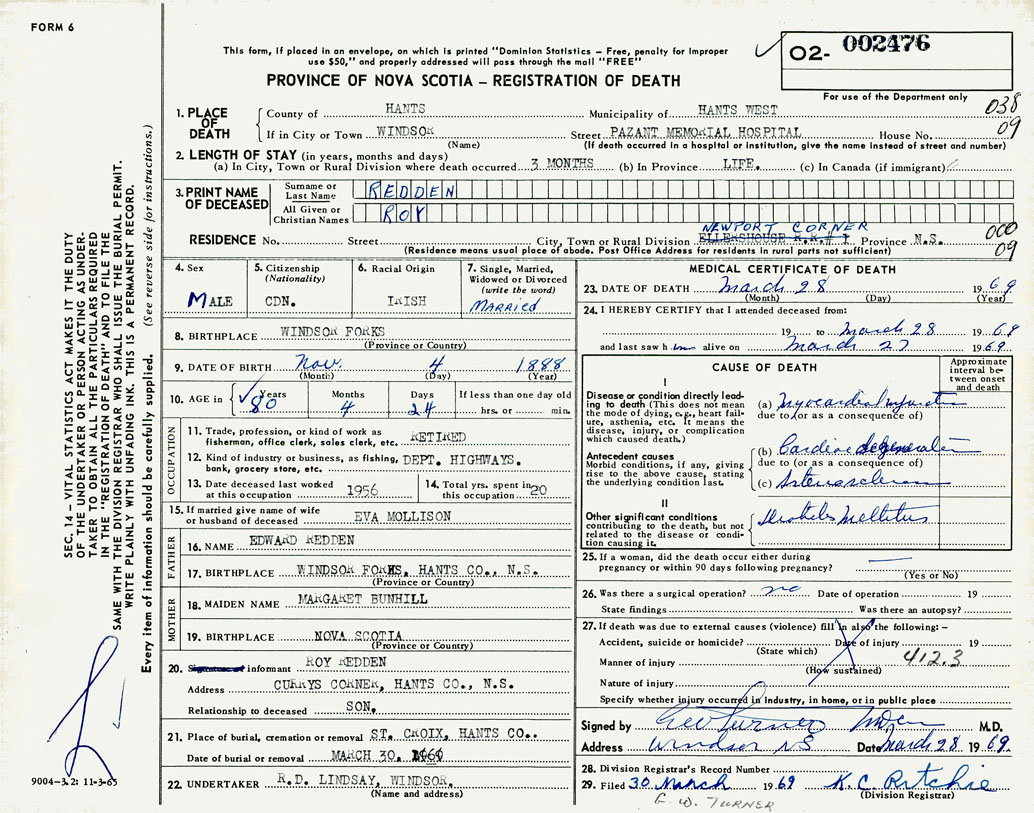 FORM 6
This form, if placed in an envelope, on which is printed "Dominion Statistics – Free, penalty for improper
use $50," and properly addressed will pass through the mail "FREE"
PROVINCE OF NOVA SCOTIA – REGISTRATION OF DEATH
02- 002476
For use of the Department only
038
09
1. PLACE OF DEATH
County of HANTS Municipality of HANTS WEST
If in City or Town WINDSOR Street PAZANT MEMORIAL HOSPITAL House No.
(Name) (If death occurred in a hospital or institution, give the name instead of street and number)
2. LENGTH OF STAY (in years, months and days)
(a) In City, Town or Rural Division where death occurred 3 MONTHS (b) In Province LIFE. (c) In Canada (if immigrant)
3. PRINT NAME OF DECEASED
Surname or Last Name REDDEN
All Given or Christian Names ROY
NEWPORT CORNER
RESIDENCE No. Street City, Town or Rural Division ELLERSHOUSE R.R.# 1 Province N.S.
(Residence means usual place of abode. Post Office Address for residents in rural parts not sufficient)
000
09
4. Sex MALE
5. Citizenship (Nationality) CDN.
6. Racial Origin IRISH
7. Single, Married, Widowed or Divorced (write the word) MARRIED
8. BIRTHPLACE WINDSOR FORKS
(Province or Country)
9. DATE OF BIRTH Nov. 4 1888
(Month) (Day) (Year)
10. AGE in Years 80 Months 4 Days 24 If less than one day old hrs. or min.
OCCUPATION
11. Trade, profession, or kind of work as fisherman, office clerk, sales clerk, etc. RETIRED
12. Kind of industry or business, as fishing, bank, grocery store, etc. DEPT. HIGHWAYS.
13. Date deceased last worked at this occupation 1956
14. Total yrs. spent in this occupation 20
15. If married give name of wife or husband of deceased EVA MOLLISON
FATHER
16. NAME EDWARD REDDEN
17. BIRTHPLACE WINDSOR FORKS, HANTS CO., N.S.
(Province or Country)
MOTHER
18. MAIDEN NAME MARGARET BUNHILL
19. BIRTHPLACE NOVA SCOTIA
(Province or Country)
20. Signature of informant ROY REDDEN
Address CURRYS CORNER, HANTS CO., N.S.
Relationship to deceased SON.
21. Place of burial, cremation or removal ST. CROIX, HANTS CO..
Date of burial or removal MARCH 30. 1969
22. UNDERTAKER R.D. LINDSAY, WINDSOR.
(Name and address)
MEDICAL CERTIFICATE OF DEATH
23. DATE OF DEATH March 28 1969
(Month) (Day) (Year)
24. I HEREBY CERTIFY that I attended deceased from:
19 to March 28 1969
and last saw him alive on March 27 1969.
CAUSE OF DEATH
Approximate interval between onset and death
I
Disease or condition directly leading to death (This does not mean the mode of dying, e.g., heart failure, asthenia, etc. It means the disease, injury, or complication which caused death.)
(a) Myocardial Infarction
due to (or as a consequence of)
Antecedent causes
Morbid conditions, if any, giving rise to the above cause, stating the underlying condition last.
(b) Cardiac degeneration
due to (or as a consequence of)
(c) Arteriosclerosis
II
Other significant conditions contributing to the death, but not related to the disease or condition causing it.
Diabetes Mellitus
25. If a woman, did the death occur either during pregnancy or within 90 days following pregnancy?
(Yes or No)
26. Was there a surgical operation? no Date of operation 19
State findings Was there an autopsy?
27. If death was due to external causes (violence) fill in also the following:–
Accident, suicide or homicide? Date of injury 19
(State which)
Manner of injury 412.3
(How sustained)
Nature of injury
Specify whether injury occurred in industry, in home, or in public place
Signed by Geo Turner M.D.
Address Windsor NS Date March 28 1969.
28. Division Registrar's Record Number
29. Filed 30 March 1969 K. C. Ritchie
(Division Registrar)
G. W. TURNER
SEC. 14 – VITAL STATISTICS ACT MAKES IT THE DUTY
OF THE UNDERTAKER OR PERSON ACTING AS UNDER-
TAKER TO OBTAIN ALL THE PARTICULARS REQUIRED
IN THE "REGISTRATION OF DEATH" AND TO FILE THE
SAME WITH THE DIVISION REGISTRAR WHO SHALL ISSUE THE BURIAL PERMIT.
WRITE PLAINLY WITH UNFADING INK. THIS IS A PERMANENT RECORD.
Every item of information should be carefully supplied. (See reverse side for instructions.)
9004–3.2: 11-3-65